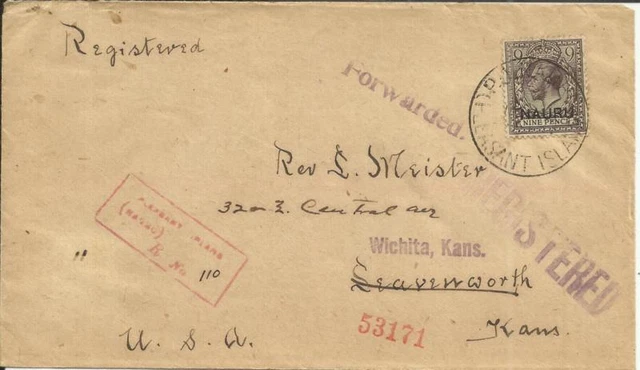 Registered
Forwarded.
9 9
NAURU
NINE PENCE
PLEASANT ISLAND
Rev L. Meister
Central ave
REGISTERED
PLEASANT ISLAND
(NAURU)
R No
" 110
Wichita, Kans.
Leavenworth
53171
Kans.
U. S. A.